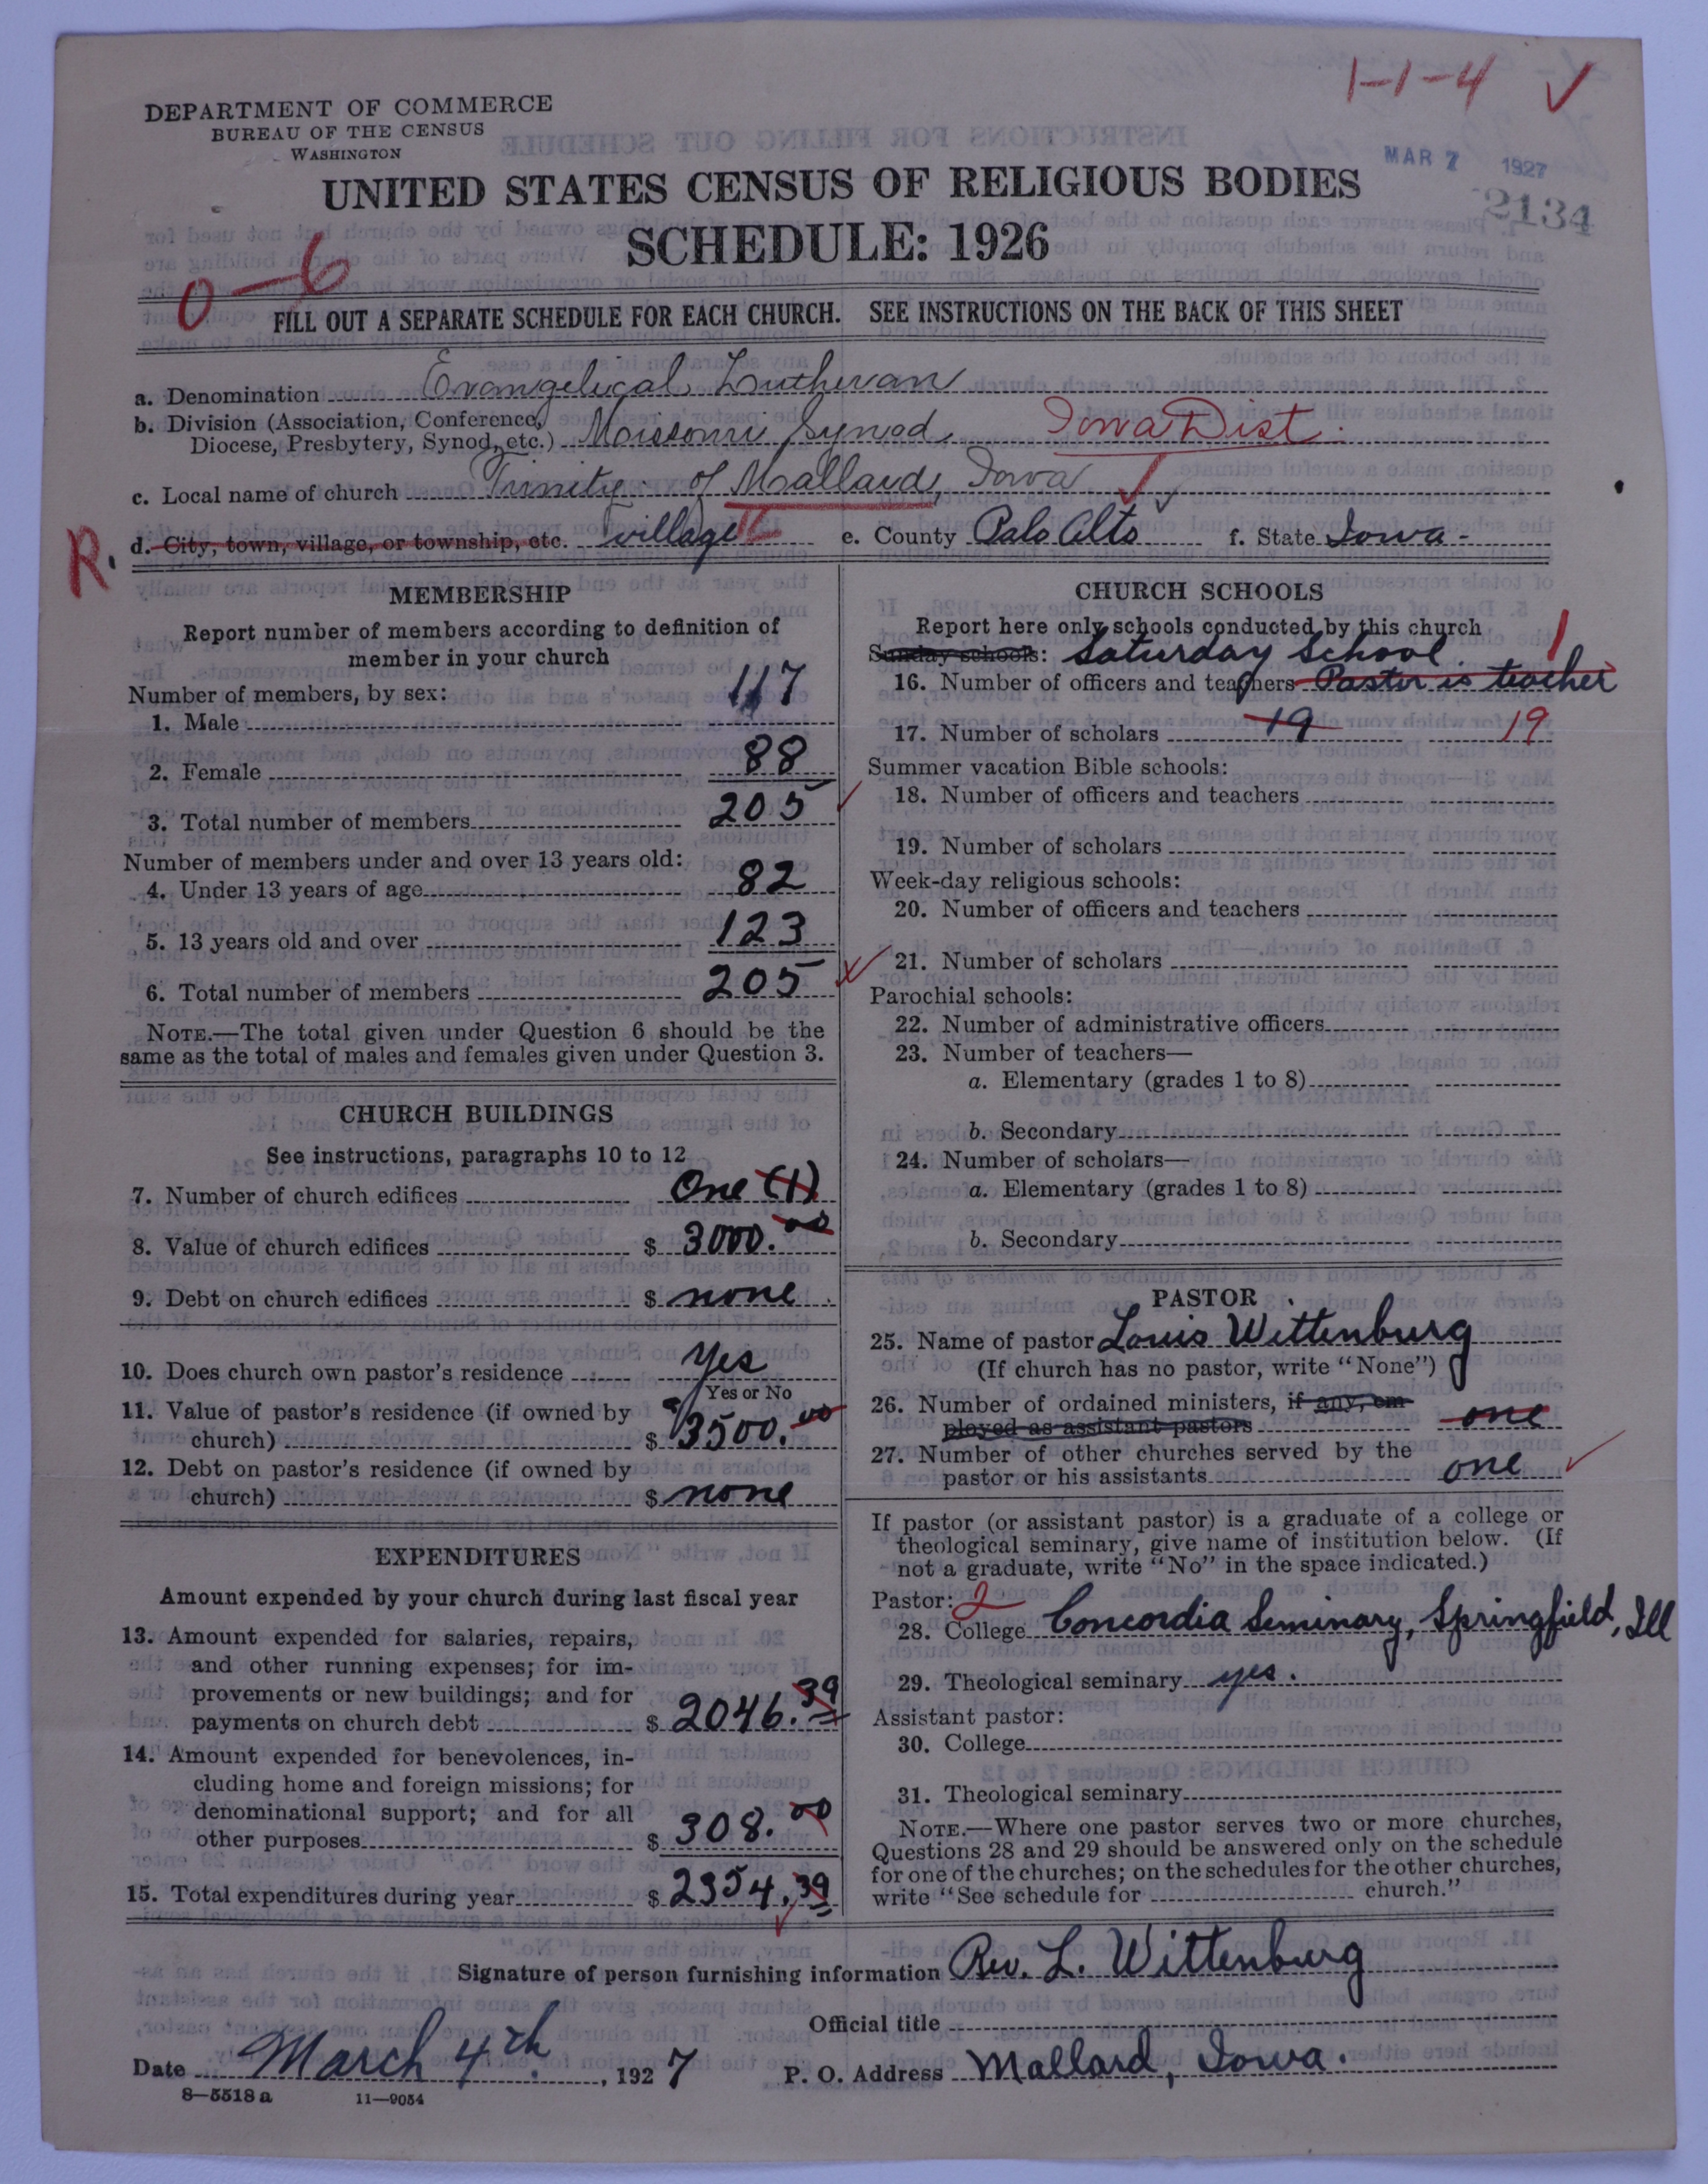 1-1-4 ✓
DEPARTMENT OF COMMERCE
BUREAU OF THE CENSUS
WASHINGTON
MAR 7 1927
2134
UNITED STATES CENSUS OF RELIGIOUS BODIES
SCHEDULE: 1926
0-6
FILL OUT A SEPARATE SCHEDULE FOR EACH CHURCH. SEE INSTRUCTIONS ON THE BACK OF THIS SHEET
a. Denomination Evangelical Lutheran
b. Division (Association, Conference,
Diocese, Presbytery, Synod, etc.) Missouri Synod. Iowa Dist.
c. Local name of church Trinity of Mallard, Iowa
R. d. City, town, village, or township, etc. village e. County Palo Alto f. State Iowa -
MEMBERSHIP
Report number of members according to definition of
member in your church
Number of members, by sex:
1. Male 117
2. Female 88
3. Total number of members 205
Number of members under and over 13 years old:
4. Under 13 years of age 82
5. 13 years old and over 123
6. Total number of members 205
NOTE.—The total given under Question 6 should be the
same as the total of males and females given under Question 3.
CHURCH BUILDINGS
See instructions, paragraphs 10 to 12
7. Number of church edifices One (1)
8. Value of church edifices $ 3000.00
9. Debt on church edifices $ none.
10. Does church own pastor's residence Yes
Yes or No
11. Value of pastor's residence (if owned by
church) $ 3500.00
12. Debt on pastor's residence (if owned by
church) $ none
EXPENDITURES
Amount expended by your church during last fiscal year
13. Amount expended for salaries, repairs,
and other running expenses; for im-
provements or new buildings; and for
payments on church debt $ 2046.39
14. Amount expended for benevolences, in-
cluding home and foreign missions; for
denominational support; and for all
other purposes $ 308.00
15. Total expenditures during year $ 2354.39
CHURCH SCHOOLS
Report here only schools conducted by this church
Sunday schools: Saturday School. 1
16. Number of officers and teachers Pastor is teacher
17. Number of scholars 19 19
Summer vacation Bible schools:
18. Number of officers and teachers
19. Number of scholars
Week-day religious schools:
20. Number of officers and teachers
21. Number of scholars
Parochial schools:
22. Number of administrative officers
23. Number of teachers—
a. Elementary (grades 1 to 8)
b. Secondary
24. Number of scholars—
a. Elementary (grades 1 to 8)
b. Secondary
PASTOR
25. Name of pastor Louis Wittenburg
(If church has no pastor, write "None")
26. Number of ordained ministers, if any, em-
ployed as assistant pastors one
27. Number of other churches served by the
pastor or his assistants one
If pastor (or assistant pastor) is a graduate of a college or
theological seminary, give name of institution below. (If
not a graduate, write "No" in the space indicated.)
Pastor: 2
28. College Concordia Seminary, Springfield, Ill
29. Theological seminary yes.
Assistant pastor:
30. College
31. Theological seminary
NOTE.—Where one pastor serves two or more churches,
Questions 28 and 29 should be answered only on the schedule
for one of the churches; on the schedules for the other churches,
write "See schedule for church."
Signature of person furnishing information Rev. L. Wittenburg
Official title
Date March 4th. , 1927 P. O. Address Mallard, Iowa.
8—5518 a 11—9054